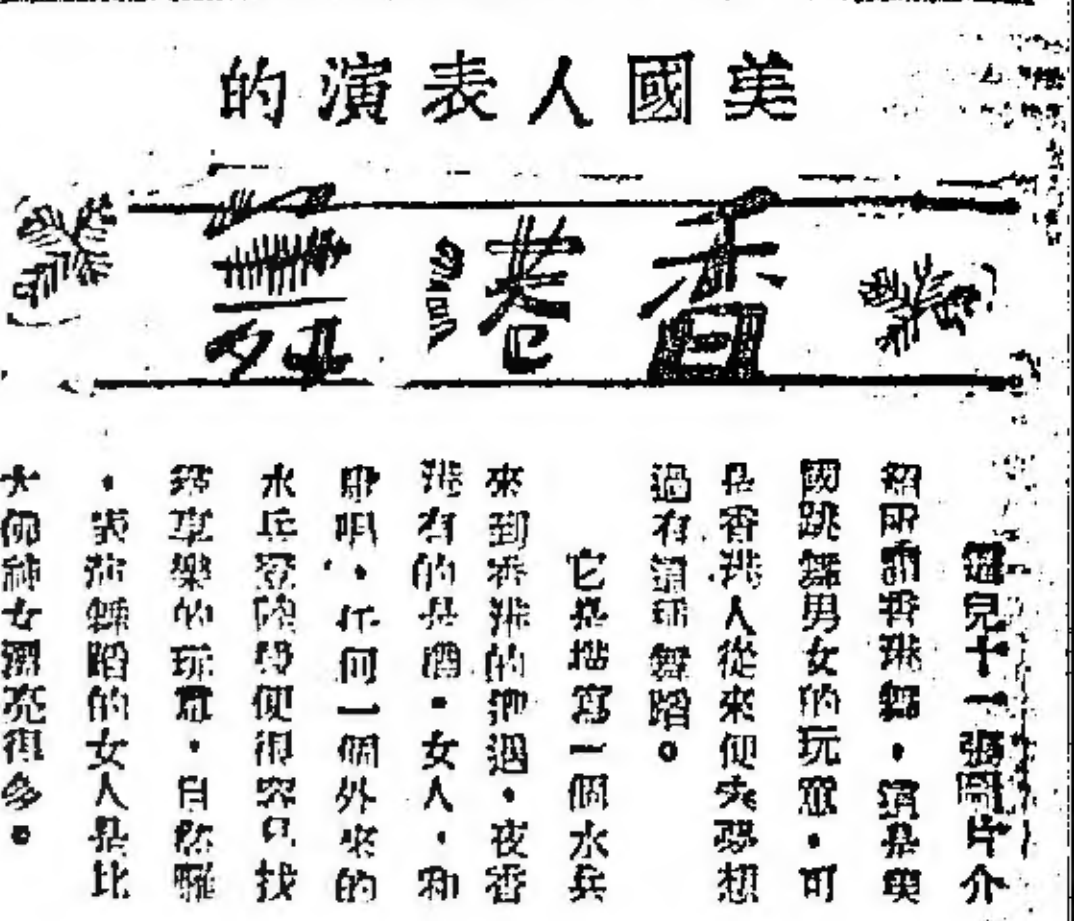 美國人表演的
香港舞
這兒十一張圖片介
紹所謂香港舞，這是美
國跳舞男女的玩意，可
是香港人從來便夢想
過有這種舞蹈。
它是描寫一個水兵
來到香港的遭遇，夜香
港有的是酒，女人，和
歌唱，任何一個外來的
水兵登陸後便很容易找
尋享樂的玩意，自然囉
，表演舞蹈的女人是比
女神女漂亮得多。